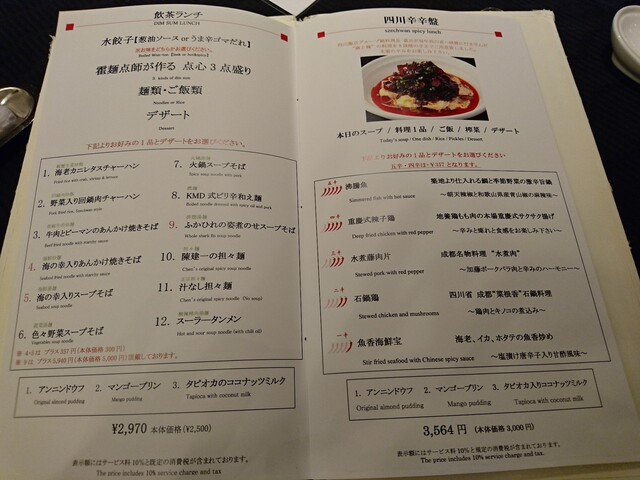 飲茶ランチ
DIM SUM LUNCH
水餃子【葱油ソース or うま辛ゴマだれ】
霍麺点師が作る 点心3点盛り
3 kinds of dim sum
麺類・ご飯類
Noodles or Rice
デザート
Dessert
下記よりお好みの1品とデザートをお選びください。
1. 海老カニレタスチャーハン
Fried rice with crab, shrimp & lettuce
2. 野菜入り回鍋肉チャーハン
3. 牛肉とピーマンのあんかけ焼きそば
Beef fried noodle with starchy sauce
4. 海の幸入りあんかけ焼きそば
Seafood fried noodle with starchy sauce
5. 海の幸入りスープそば
Seafood soup noodle
6. 色々野菜スープそば
Vegetables soup noodle
7. 火鍋スープそば
Spicy soup noodle with pork
8. KMD式ピリ辛和え麺
Boiled noodle dressed with spicy oil and pork
9. ふかひれの姿煮のせスープそば
Whole shark fin soup noodle
10. 陳建一の担々麺
Chen's original spicy soup noodle
11. 汁なし担々麺
Chen's original spicy noodle (No soup)
12. スーラータンメン
Hot and sour soup noodle (with chili oil)
1. アンニンドウフ 2. マンゴープリン 3. タピオカのココナッツミルク
Original almond pudding Mango pudding Tapioca with coconut milk
¥2,970 本体価格(¥2,500)
表示額にはサービス料10%と既定の消費税が含まれております。
The price includes 10% service charge and tax.
四川辛辛盤
szechwan spicy lunch
本日のスープ / 料理1品 / ご飯 / 搾菜 / デザート
Today's soup / One dish / Rice / Pickles / Dessert
下記よりお好みの1品とデザートをお選びください
五辛・四辛は+¥357となります。
五辛 沸騰魚 築地より仕入れる鯛と季節野菜の激辛旨鍋
Simmered fish with hot sauce ～朝天辣椒と和歌山県産青山椒の麻辣味～
重慶式辣子鶏 地養鶏もも肉の本場重慶式サクサク揚げ
Deep fried chicken with red pepper ～辛みと痺れと食感をお楽しみ下さい～
水煮藤肉片 成都名物料理 “水煮肉”
Stewed pork with red pepper ～加藤ポークバラ肉と辛みのハーモニー～
二辛 石鍋鶏 四川省 成都“菜根香”石鍋料理
Stewed chicken and mushrooms ～鶏肉とキノコの煮込み～
一辛 魚香海鮮宝 海老、イカ、ホタテの魚香炒め
Stir fried seafood with Chinese spicy sauce ～塩漬け唐辛子入り甘酢風味～
1. アンニンドウフ 2. マンゴープリン 3. タピオカ入りココナッツミルク
Original almond pudding Mango pudding Tapioca with coconut milk
3,564円 (本体価格3,000円)
表示額にはサービス料10%と既定の消費税が含まれております。
The price includes 10% service charge and tax.